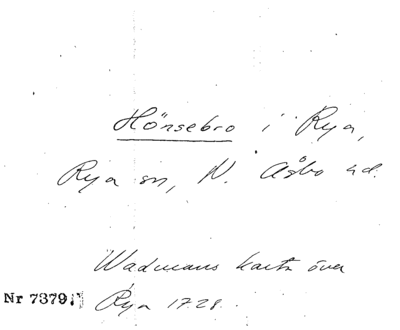 Hönsebro i Rya,
Rya sn, N. Åsbo hd.
Wadmans karta över
Nr 7379. Rya 1728.